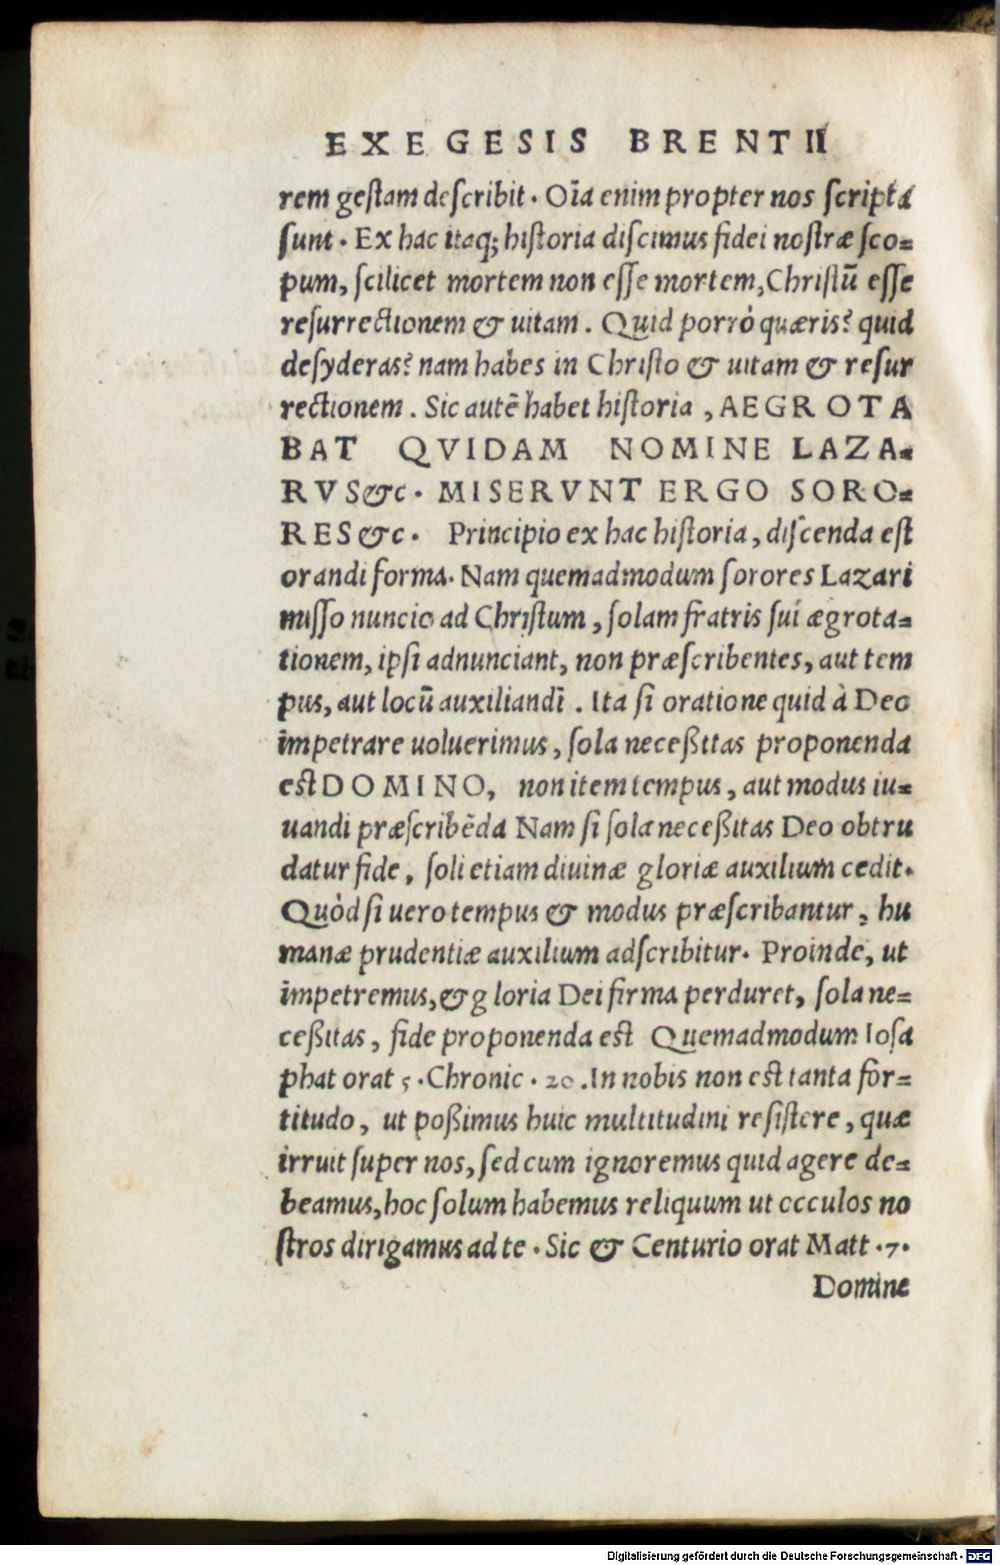 EXEGESIS BRENTII
rem gestam describit. Oĩa enim propter nos scripta
sunt. Ex hac itaq; historia discimus fidei nostræ sco=
pum, scilicet mortem non esse mortem, Christũ esse
resurrectionem & uitam. Quid porrò quæris? quid
desyderas? nam habes in Christo & uitam & resur
rectionem. Sic autẽ habet historia, AEGROTA
BAT QVIDAM NOMINE LAZA=
RVS &c. MISERVNT ERGO SORO=
RES &c. Principio ex hac historia, discenda est
orandi forma. Nam quemadmodum sorores Lazari
misso nuncio ad Christum, solam fratris sui ægrota=
tionem, ipsi adnunciant, non præscribentes, aut tem
pus, aut locũ auxiliandi. Ita si oratione quid à Deo
impetrare uoluerimus, sola neceßitas proponenda
est DOMINO, non item tempus, aut modus iu=
uandi præscribẽda Nam si sola neceßitas Deo obtru
datur fide, soli etiam diuinæ gloriæ auxilium cedit.
Quòd si uero tempus & modus præscribantur, hu
manæ prudentiæ auxilium adscribitur. Proinde, ut
impetremus, & gloria Dei firma perduret, sola ne=
ceßitas, fide proponenda est Quemadmodum Iosa
phat orat 5. Chronic. 20. In nobis non est tanta for=
titudo, ut poßimus huic multitudini resistere, quæ
irruit super nos, sed cum ignoremus quid agere de=
beamus, hoc solum habemus reliquum ut occulos no
stros dirigamus ad te. Sic & Centurio orat Matt. 7.
Domine
Digitalisierung gefördert durch die Deutsche Forschungsgemeinschaft - DFG